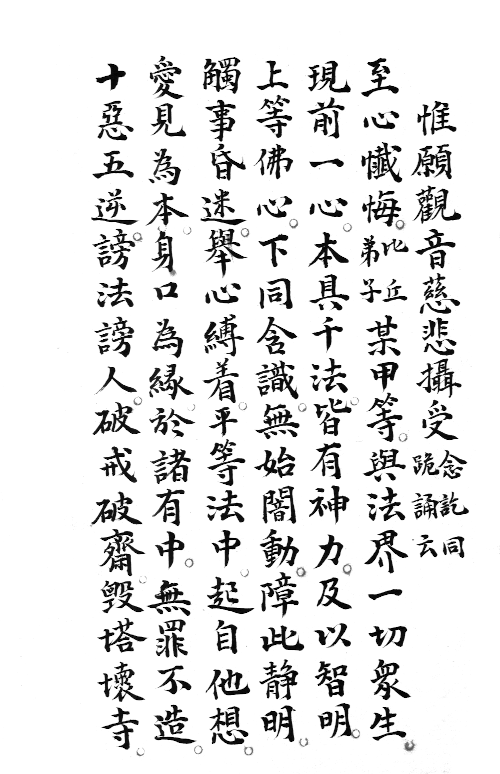 惟願觀音慈悲攝受念訖同跪誦云
至心懺悔。比丘弟子某甲等。與法界一切眾生。
現前一心。本具千法。皆有神力。及以智明。
上等佛心。下同含識。無始闇動。障此静明。
觸事昏迷。舉心縛着。平等法中。起自他想。
愛見為本。身口為緣。於諸有中。無罪不造。
十惡五逆。謗法謗人。破戒破齋。毀塔壞寺。